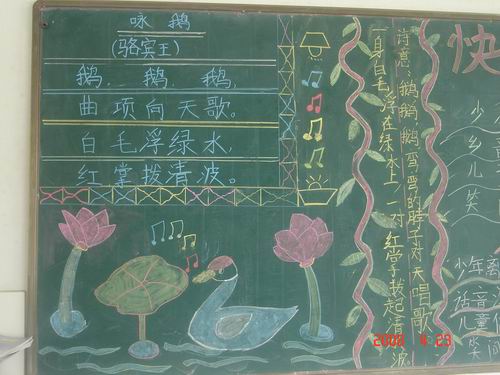 咏 鹅
(骆宾王)
鹅, 鹅, 鹅,
曲项向天歌。
白毛浮绿水,
红掌拨清波。
诗意:鹅鹅鹅弯弯的脖子对天唱歌
一身白毛浮在绿水上,一对红掌拨起清波。
快
少
乡
儿
笑
少年
话音
儿童
笑问
2008 4 23